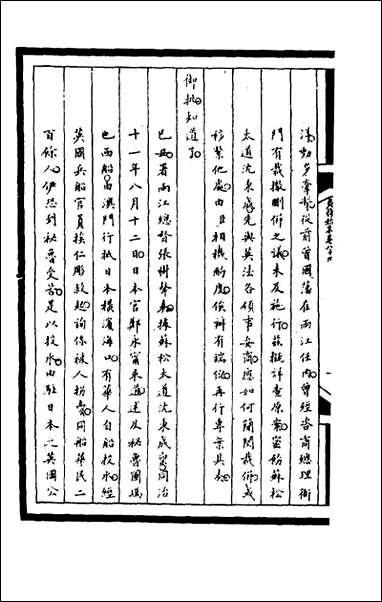 湯動多牽掣從前曾國藩在兩江任內曾經咨商總理衙
門有裁撤刪併之議未及施行茲擬詳查原案密飭蘇松
太道沈秉成先與英法各領事妥商應如何簡閱裁併或
移紮他處由臣相機酌度俟辦有端倪再行專案具奏
御批知道了
已丑署兩江總督張樹聲奏據蘇松太道沈秉成稟同治
十一年八月十二日日本官鄭永甯來道述及秘魯國瑪
也西船由澳門行抵日本橫濱海口有華人自船投水經
英國兵船官員撈救起詢係被人拐賣同船華民二
百餘人伊恐到秘魯受苦是以投水由駐日本之英國公